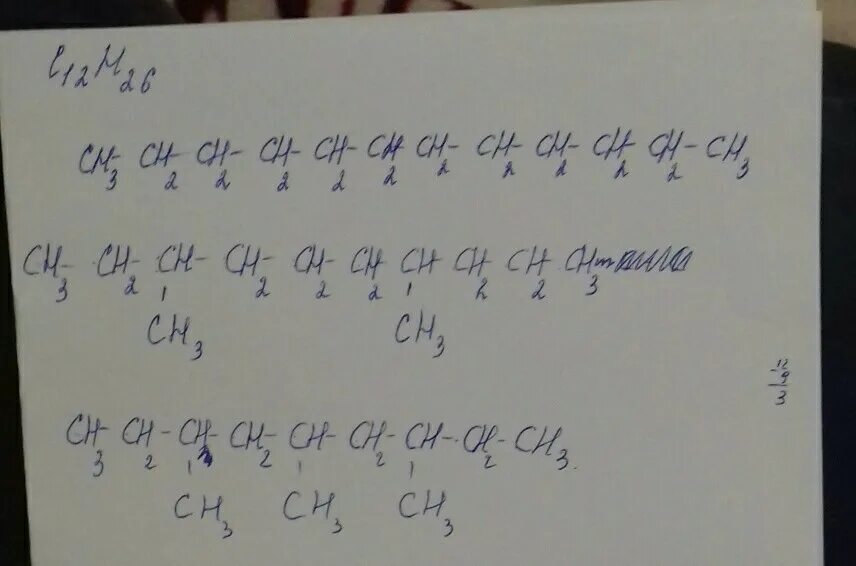 C12H26
CH3-CH2-CH2-CH2-CH2-CH2-CH2-CH2-CH2-CH2-CH2-CH3
CH3-CH2-CH-CH2-CH2-CH2-CH-CH2-CH2-CH3
CH3 CH3
12
9
3
CH3-CH2-CH-CH2-CH-CH2-CH-CH2-CH3.
CH3 CH3 CH3